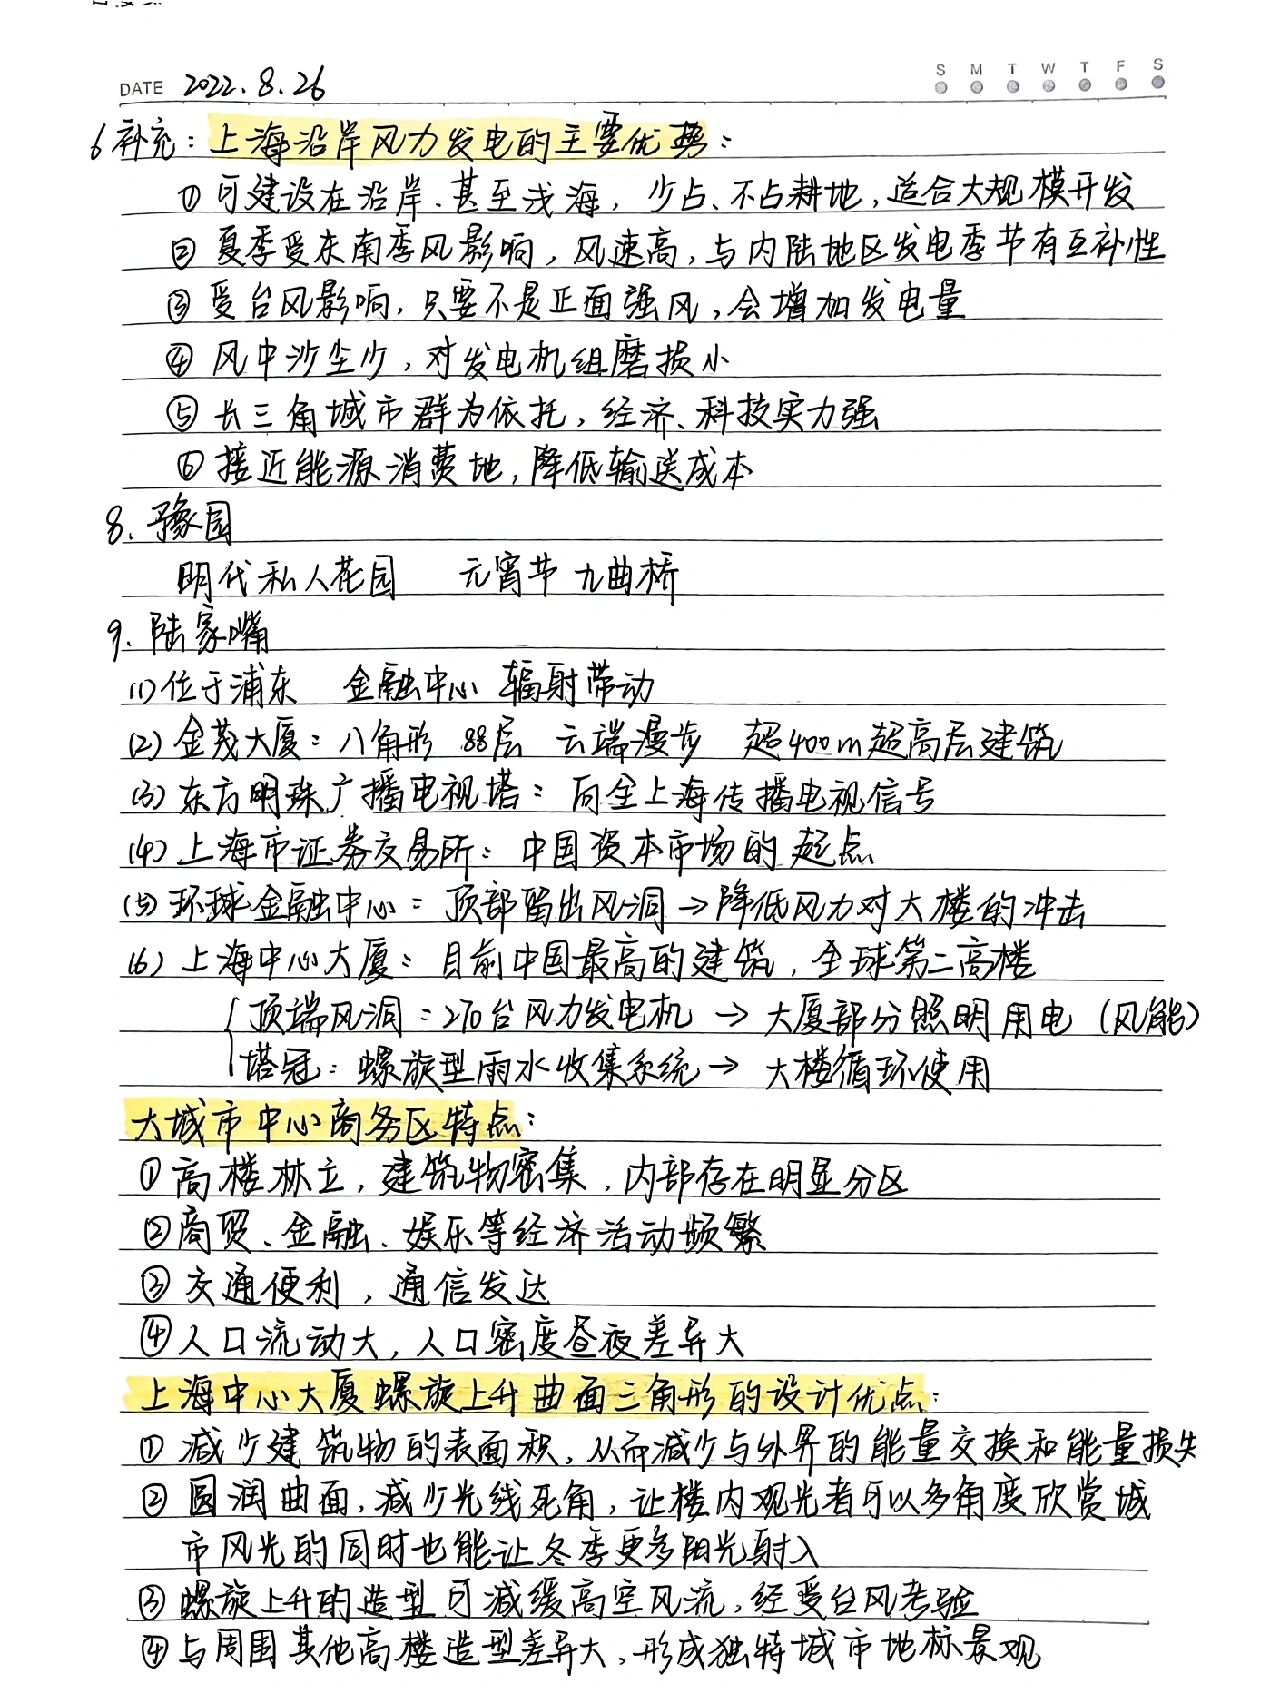 S M T W T F S
DATE 2022.8.26
6补充：上海沿岸风力发电的主要优势：
①可建设在沿岸、甚至浅海，少占、不占耕地，适合大规模开发
②夏季受东南季风影响，风速高，与内陆地区发电季节有互补性
③受台风影响，只要不是正面强风，会增加发电量
④风中沙尘少，对发电机组磨损小
⑤长三角城市群为依托，经济、科技实力强
⑥接近能源消费地，降低输送成本
8. 豫园
明代私人花园 元宵节 九曲桥
9. 陆家嘴
(1)位于浦东 金融中心 辐射带动
(2)金茂大厦：八角形 88层 云端漫步 超400m超高层建筑
(3)东方明珠广播电视塔：向全上海传播电视信号
(4)上海市证券交易所：中国资本市场的起点
(5)环球金融中心：顶部留出风洞→降低风力对大楼的冲击
(6)上海中心大厦：目前中国最高的建筑，全球第二高楼
顶端风洞：270台风力发电机→大厦部分照明用电（风能）
塔冠：螺旋型雨水收集系统→大楼循环使用
大城市中心商务区特点：
①高楼林立，建筑物密集，内部存在明显分区
②商贸、金融、娱乐等经济活动频繁
③交通便利，通信发达
④人口流动大，人口密度昼夜差异大
上海中心大厦螺旋上升曲面三角形的设计优点：
①减少建筑物的表面积，从而减少与外界的能量交换和能量损失
②圆润曲面，减少光线死角，让楼内观光者可以多角度欣赏城
市风光的同时也能让冬季更多阳光射入
③螺旋上升的造型可减缓高空风流，经受台风考验
④与周围其他高楼造型差异大，形成独特城市地标景观